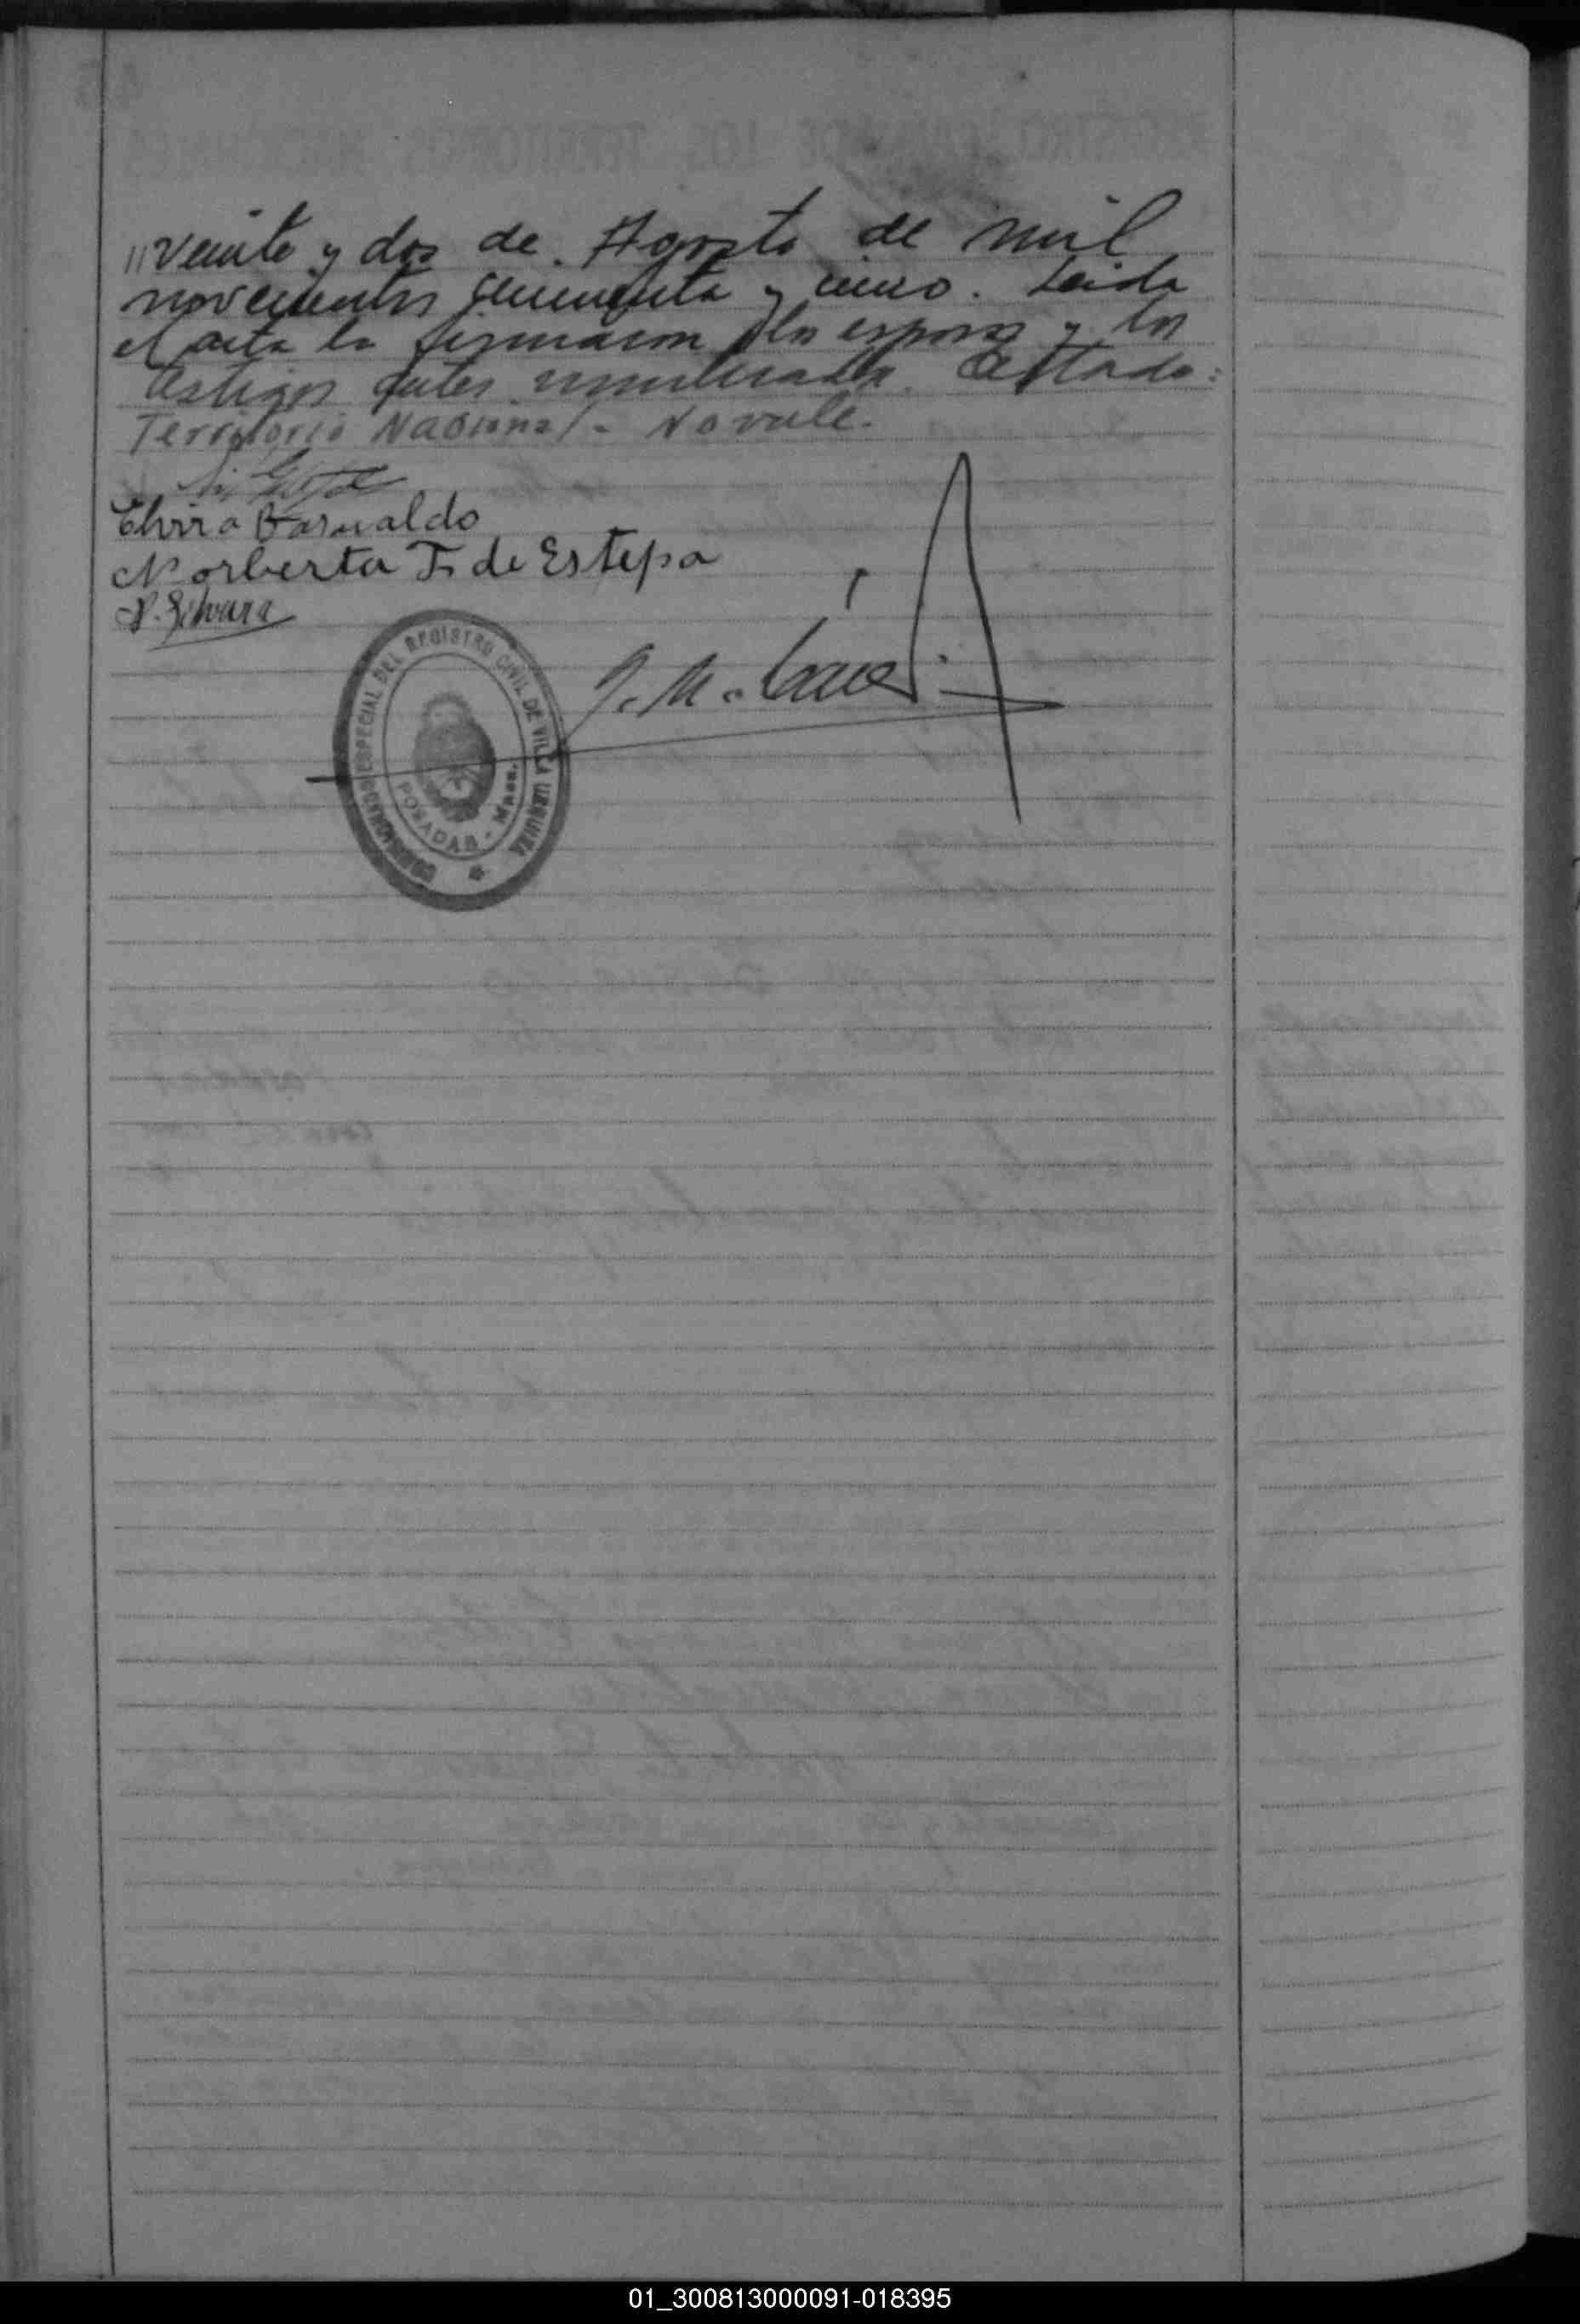 veinte y dos de Agosto de mil
novecientos cincuenta y cinco. Leida
el acta la firmaron los esposos y los
testigos antes nombrados. Testado:
Territorio Nacional - No vale.
Elvira Barualdo
Norberta F. de Estepa
COMISARIATO ESPECIAL DEL REGISTRO CIVIL DE VILLA URQUIZA
POSADAS - Mnes.
J. M.
01_300813000091-018395